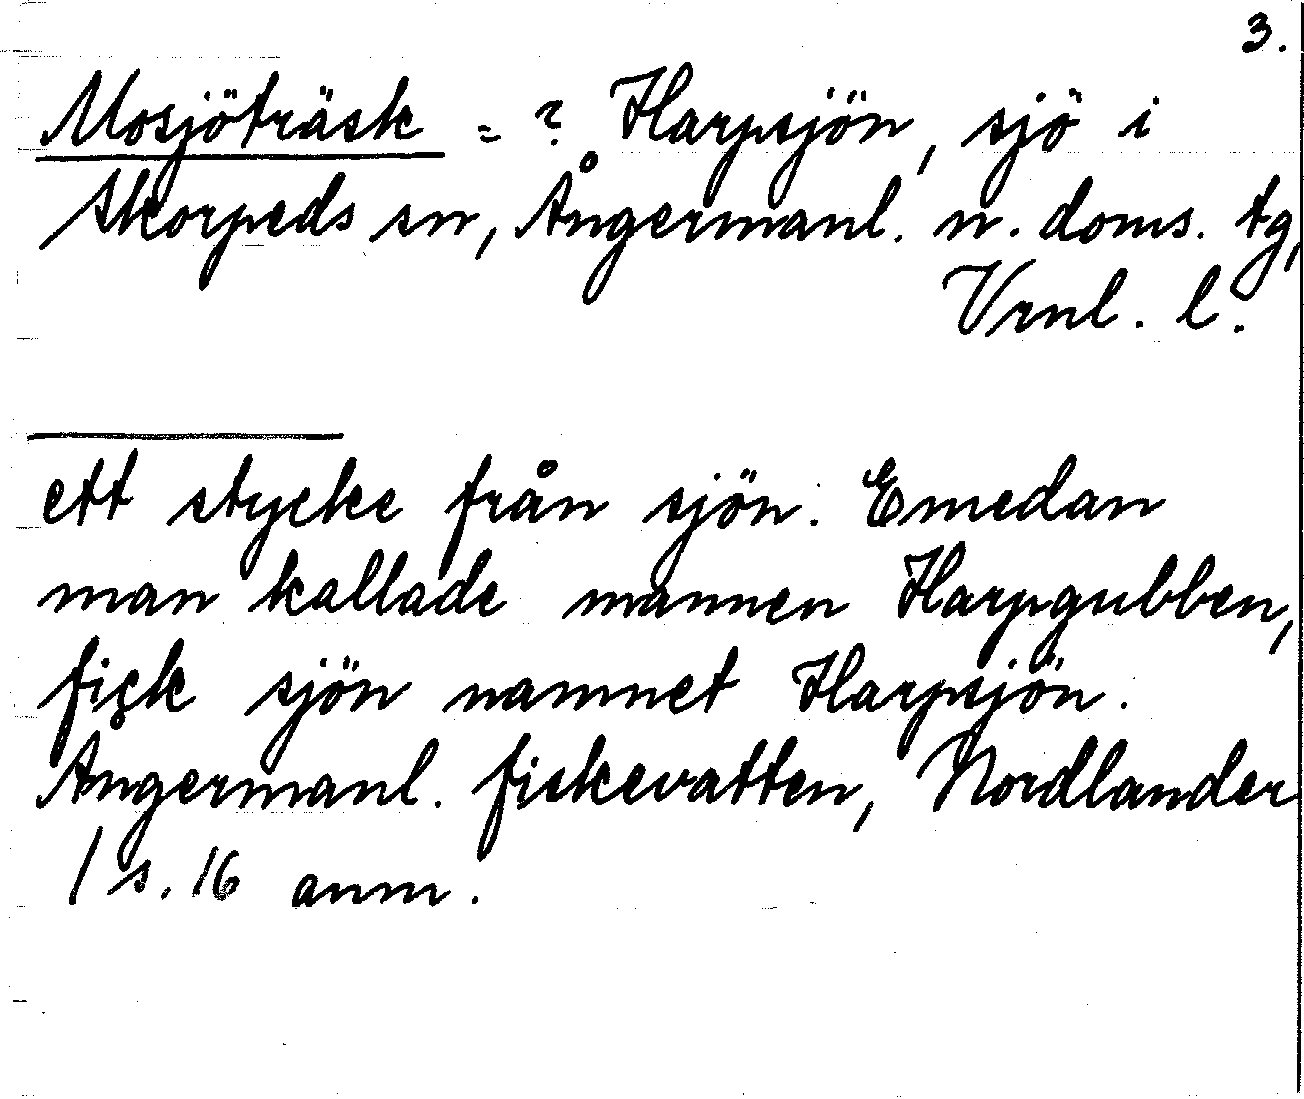 3.
Mosjöträsk = ? Harpsjön, sjö i
Skorpeds sn, Ångermanl. n. doms. tg,
Vrnl. l.
ett stycke från sjön. Emedan
man kallade mannen Harpgubben,
fick sjön namnet Harpsjön.
Ångermanl. fiskevatten, Nordlander
1 s. 16 anm.